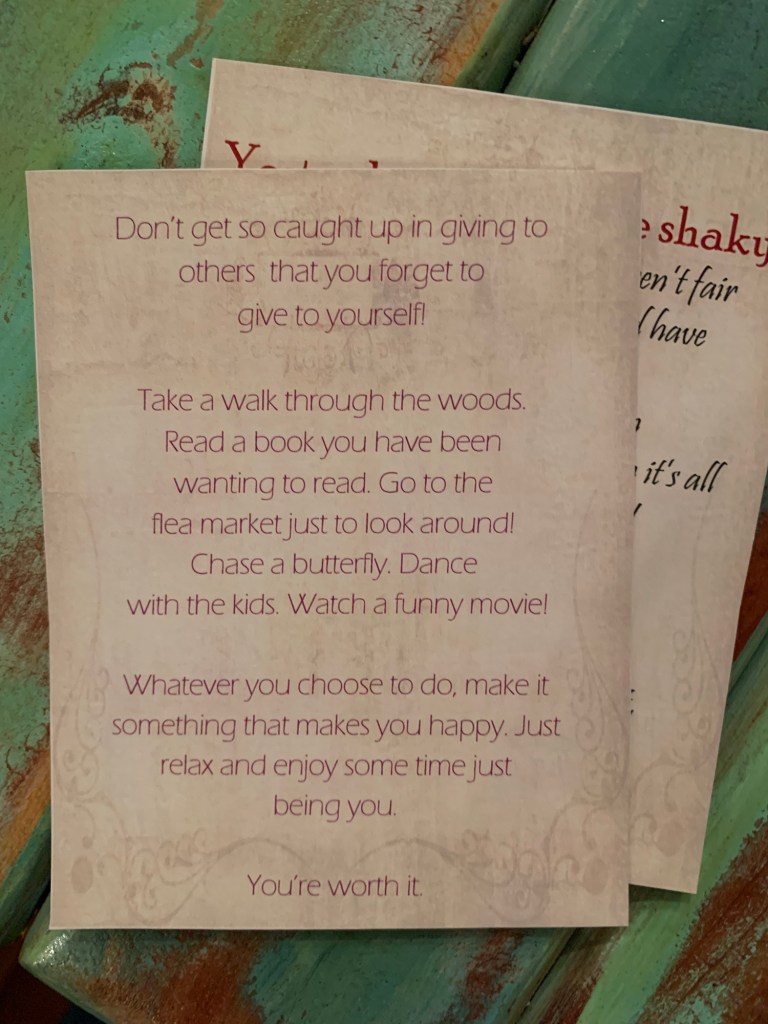 Don't get so caught up in giving to
others that you forget to
give to yourself!
Take a walk through the woods.
Read a book you have been
wanting to read. Go to the
flea market just to look around!
Chase a butterfly. Dance
with the kids. Watch a funny movie!
Whatever you choose to do, make it
something that makes you happy. Just
relax and enjoy some time just
being you.
You're worth it.
shaky
fair
have
it's all